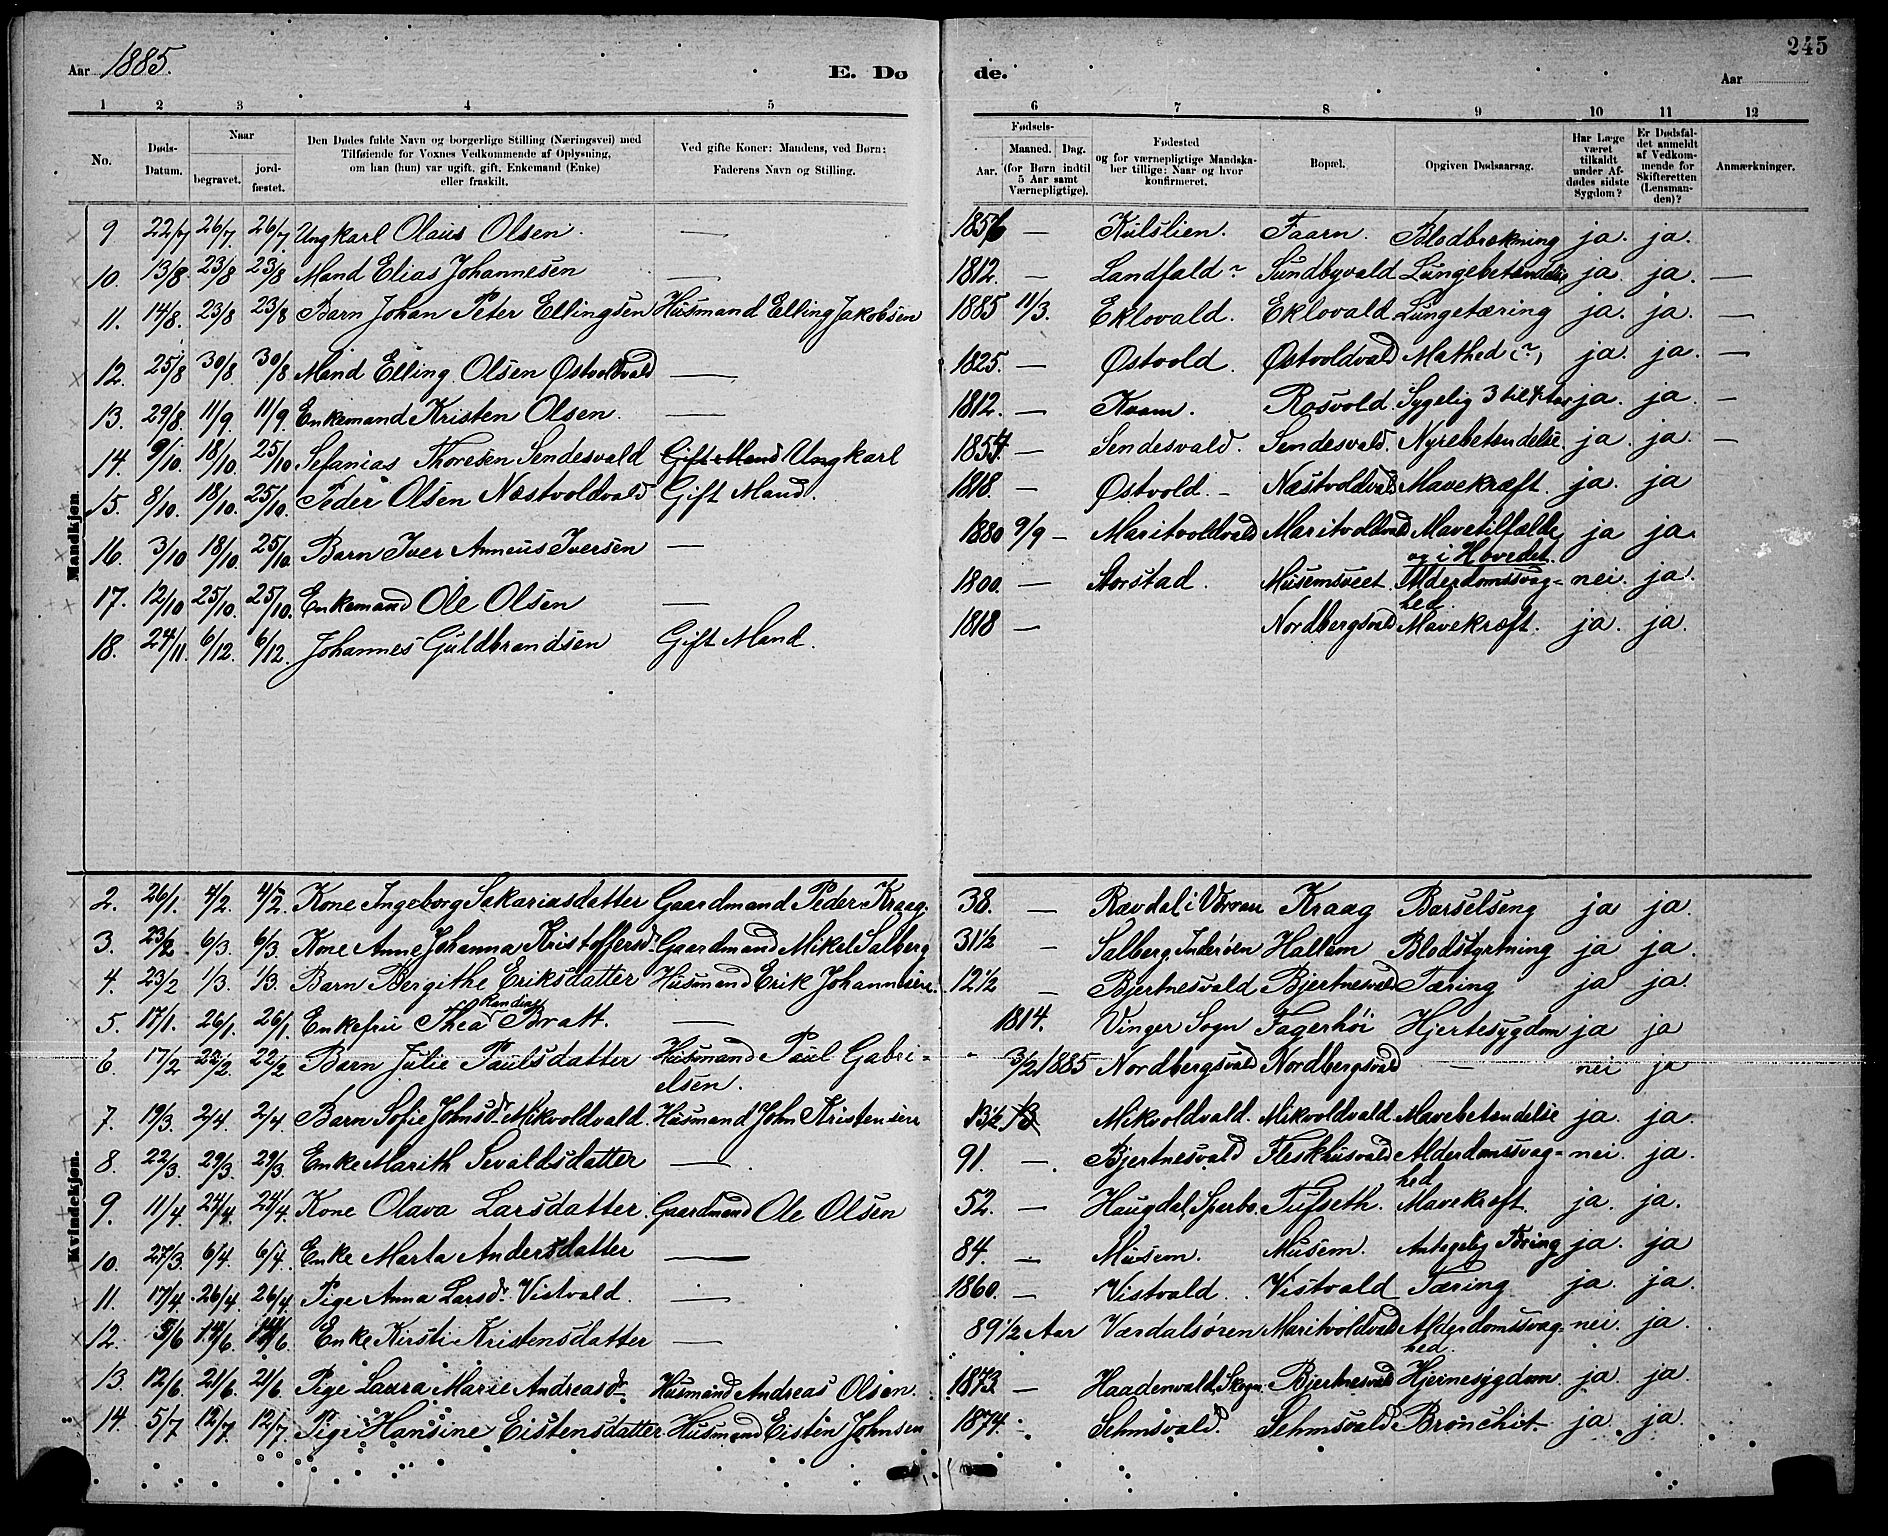 Aar 1885. E. Dø de. Aar 245
1 2 3 4 5 6 7 8 9 10 11 12
No. Døds-Datum. Naar begravet. jordfæstet. Den Dødes fulde Navn og borgerlige Stilling (Næringsvei) med Tilføiende for Voxnes Vedkommende af Oplysning, om han (hun) var ugift, gift, Enkemand (Enke) eller fraskilt. Ved gifte Koner: Mandens, ved Børn: Faderens Navn og Stilling. Fødsels- Aar. Maaned. Dag. (for Børn indtil 5 Aar samt Værnepligtige). Fødested og for værnepligtige Mandskaber tillige: Naar og hvor konfirmeret. Bopæl. Opgiven Dødsaarsag. Har Læge været tilkaldt under Afdødes sidste Sygdom? Er Dødsfaldet anmeldt af Vedkommende for Skifteretten (Lensmanden)? Anmærkninger.
Mandkjøn.
9 22/7 26/7. 26/7 Ungkarl Olaus Olsen. — 1856 — Kulslien. Faarn. Blodbrækning ja. ja.
10. 13/8. 23/8 23/8 Mand Elias Johannesen — 1812. — Landfald Sundbyvald Lungebetændelse ja. ja. —
11. 14/8. 23/8 23/8 Barn Johan Peter Ellingsen Husmand Elling Jakobsen 1885 11/3. Eklovald. Eklovald Lungetæring ja. ja. —
12. 25/8 30/8 30/8 Mand Elling Olsen Østvoldvald — 1825. — Østvold. Østvoldvald Mathed ja. ja. —
13. 29/8. 11/9 11/9. Enkemand Kristen Olsen. — 1812. — Kvam. Rosvold. Sygelig 3 til 4 ja. ja. —
14. 9/10. 18/10. 25/10 Sefanias Thoresen Sendesvald Gift Mand Ungkarl 1854 — Sendesvald. Sendesvald. Nyrebetændelse. ja. ja. —
15. 8/10. 18/10. 25/10. Peder Olsen Næstvoldvald Gift Mand. 1818. — Østvold. — Næstvoldvald Mavekræft. ja. ja
16. 3/10 18/10. 25/10. Barn Iver Anneus Iversen — 1880 9/9 — Maritvoldvald Maritvoldvald Mavetilfælde og i Hovedet. ja ja.
17. 12/10 25/10. 25/10. Enkemand Ole Olsen — 1800. — Storstad. Musemsveet. Alderdomssvaghed. nei. ja.
18. 24/11. 6/12. 6/12. Johannes Guldbrandsen Gift Mand. 1818 — Nordbergsvald Mavekræft. ja. ja.
Kvindekjøn.
2. 26/1. 4/2. 4/2. Kone Ingeborg Sakariasdatter Gaardmand Peder Kraag. 38. — Ravdal i Kraag Barselseng ja ja.
3. 23/2 6/3. 6/3. Kone Anne Johanna Kristoffersd. Gaardmand Mikel Salberg 31 1/2 — Salberg. Inderøen Hallem Blodstyrtning ja ja.
4. 23/2 1/3. 1/3. Barn Bergithe Eriksdatter Husmand Erik Johannesen. 12 1/2 — Bjertnesvald Bjertnesvald Tæring ja ja.
5. 17/1. 26/1. 26/1 Enkefru Thea Randine Bratt. — 1814. Vinger Sogn Fagerhøi Hjertesygdom ja ja
6. 17/2 22/2. 22/2 Barn Julie Paulsdatter Husmand Paul Gabrielsen. 3/2 1885 Nordbergsvald Nordbergsvald — nei ja
7. 19/3. 2/4. 2/4. Barn Sofie Johnsd. Mikvoldvald. Husmand John Kristensen 13 1/2 Mikvoldvald. Mikvoldvald Mavebetændelse ja. ja.
8. 22/3. 29/3. 29/3 Enke Marith Sevaldsdatter — 91. — Bjertnesvald Fleskhusvald Alderdomssvaghed nei. ja.
9. 11/4 24/4. 24/4. Kone Olava Larsdatter. Gaardmand Ole Olsen 52. — Haugdal, Sparbo. Tufseth. Mavekræft. ja. ja.
10. 27/3. 6/4. 6/4. Enke Marta Andersdatter — 84. — Musem. Musem. Tæring ja. ja
11. 17/4. 26/4. 26/4. Pige Anna Larsd. Vistvald. — 1860. — Vistvald. Vistvald Tæring ja. ja.
12. 5/6 14/6 14/6. Enke Kirsti Kristensdatter — 89 1/2 Aar Værdalsøren. Maritvoldvald Alderdomssvaghed. nei. ja.
13. 12/6. 21/6. 21/6. Pige Laura Marie Andreasd. Husmand Andreas Olsen. 1873. — Haadenvald, Skogn. Bjertnesvald Hjernesygdom ja ja.
14. 5/7 12/7 12/7. Pige Hansine Eistensdatter Husmand Eisten Johnsen 1874. — Sehmsvald. Sehmsvald. Bronchit. ja. ja.